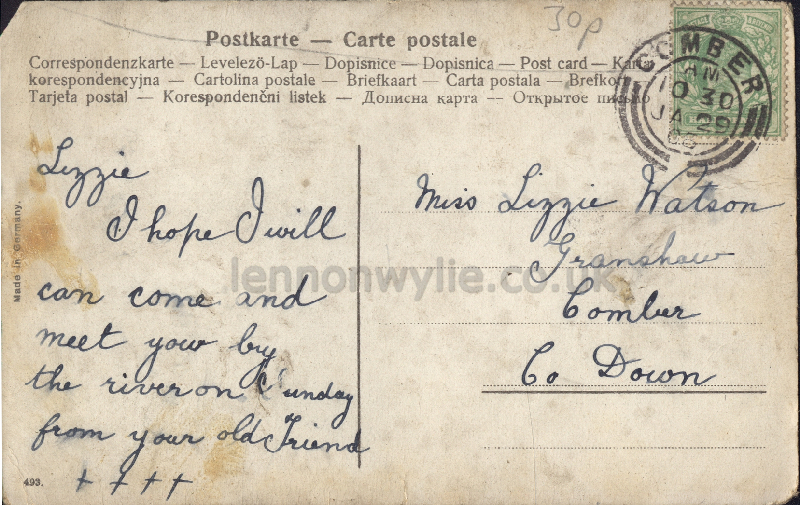 30p
Postkarte — Carte postale
Correspondenzkarte — Levelező-Lap — Dopisnice — Dopisnica — Post card — Karta
korespondencyjna — Cartolina postale — Briefkaart — Carta postala — Brefkort
Tarjeta postal — Korespondenční listek — Дописна карта — Открытое письмо
COMBER
AM
10 30
JA 29
Lizzie
I hope I will
can come and
meet your by
the river on Sunday
from your old Friend
++++
Miss Lizzie Watson
Granshaw
Comber
Co Down
Made in Germany.
493.
lennonwylie.co.uk